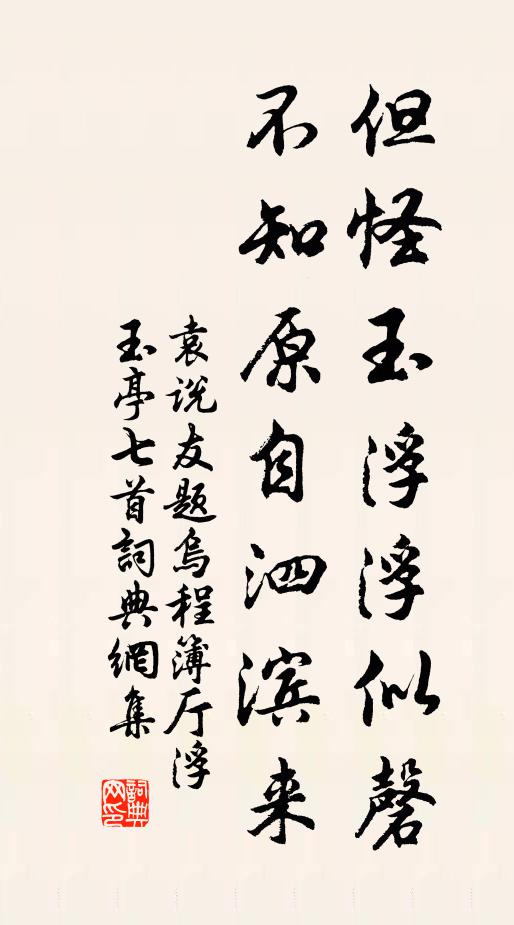 但怪玉浮浮似磬
不知原自泗滨来
袁说友题乌程簿厅浮
玉亭七首詞典網集
詞典网印